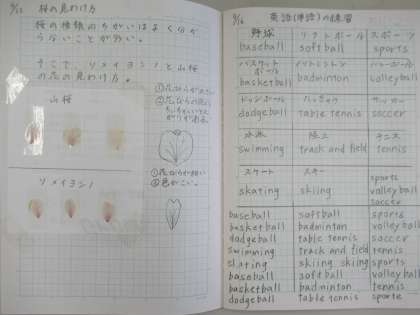 桜の見わけ方
桜の種類のちがいはよく分か
らないことが多い。
そこで、ソメイヨシノと山桜
の花の見わけ方。
山桜
ソメイヨシノ
英語(単語)の練習
野球 ソフトボール スポーツ
baseball softball sports
バスケットボール バドミントン バレーボール
basketball badminton volleyball
ドッジボール 卓球 サッカー
dodgeball table tennis soccer
水泳 陸上 テニス
swimming track and field tennis
スケート スキー
skating skiing sports
volleyball
soccer
baseball softball sports
basketball badminton volleyball
dodgeball table tennis soccer
swimming track and field tennis
skating skiing skiing sports
baseball softball volleyball
basketball badminton tennis
dodgeball table tennis sports